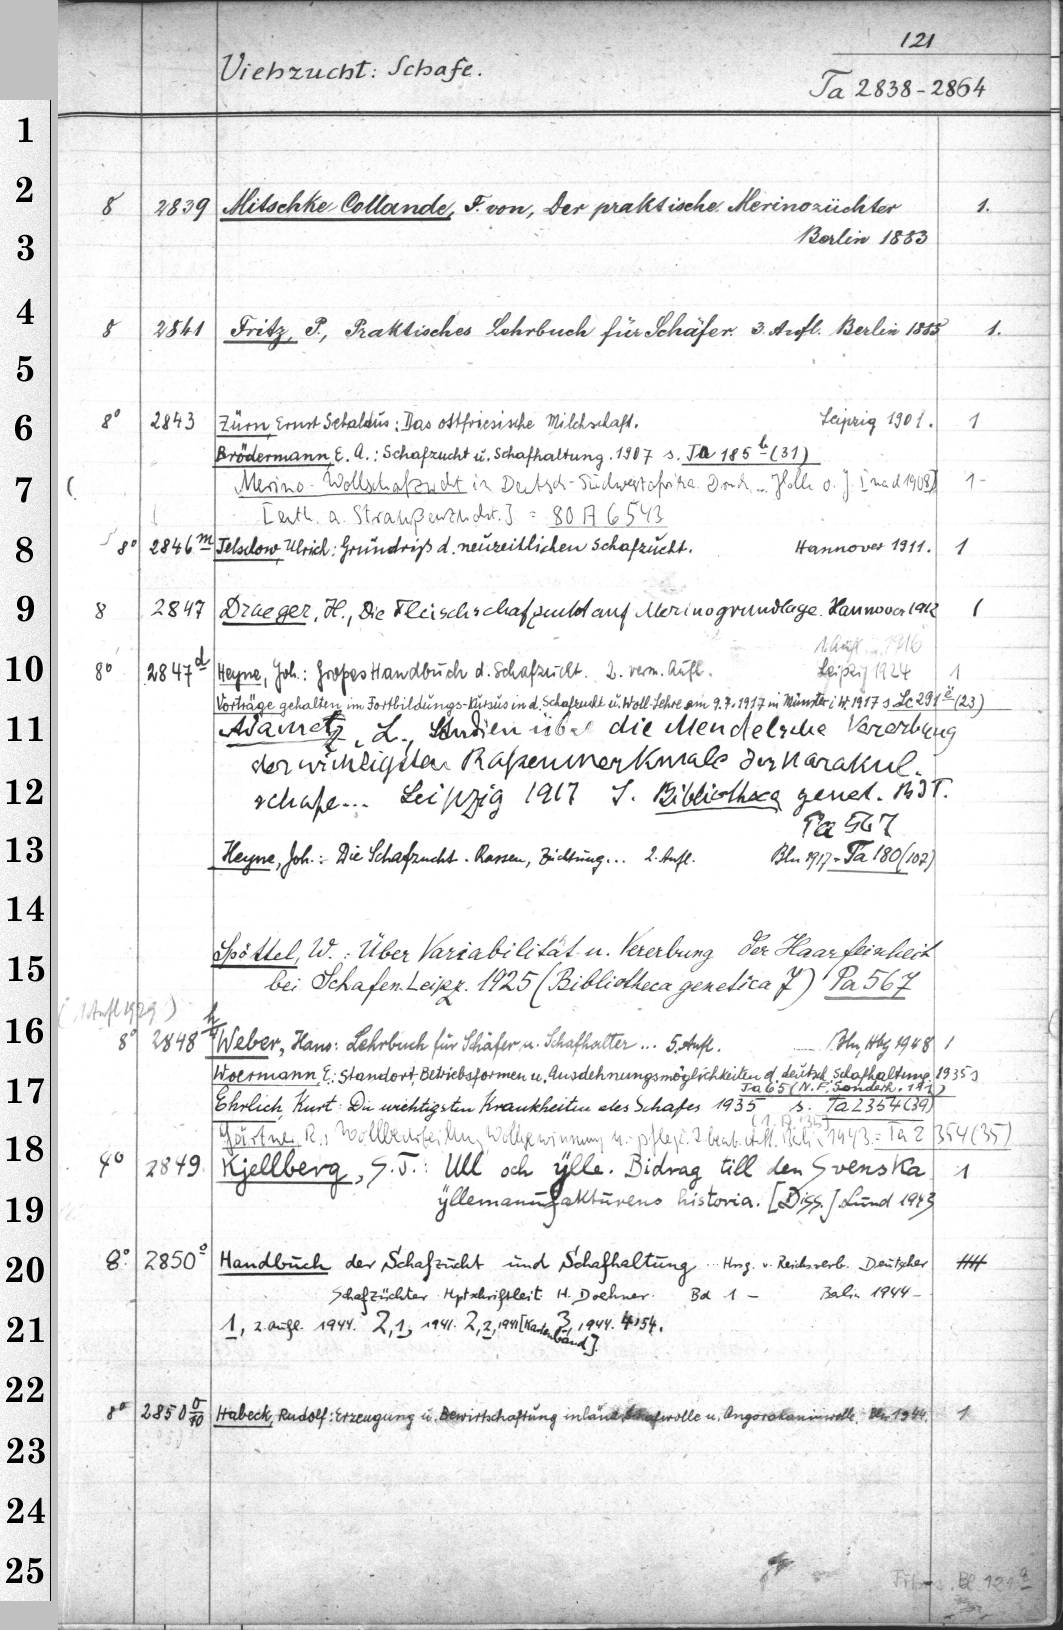 121
Viehzucht: Schafe.
Ta 2838-2864
1
2
8 2839 Mitschke-Collande, F. von, Der praktische Merinozüchter 1.
3
Berlin 1883
4
8 2841 Fritz, P., Praktisches Lehrbuch für Schäfer. 3. Aufl. Berlin 1885 1.
5
6
8° 2843 Zürn, Ernst Sebaldus: Das ostfriesische Milchschaf. Leipzig 1901. 1
Brödermann, E. A.: Schafzucht u. Schafhaltung. 1907 s. Ta 185 b (31)
7
( Merino-Wollschafzucht in Deutsch-Südwestafrika. Druck ... Halle o. J. [nach 1908] 1-
[enth. a. Straußenzucht.] = 80 A 6543
8
8° 2846 m Telschow, Ulrich: Grundriß d. neuzeitlichen Schafzucht. Hannover 1911. 1
9
8 2847 Draeger, H., Die Fleischschafzucht auf Merinogrundlage. Hannover 1912 1
1. Aufl. 1916
10
8° 2847 d Heyne, Joh.: Großes Handbuch d. Schafzucht. 2. verm. Aufl. Leipzig 1924 1
Vorträge gehalten im Fortbildungs-Kursus in d. Schafzucht u. Woll-Lehre am 9.7.1917 in Münster i. W. 1917 s Lc 291 e (23)
11
Adametz, L., Studien über die Mendelsche Vererbung
der wichtigsten Rassenmerkmale der Karakul-
12
schafe... Leipzig 1917 S. Bibliotheca genet. Bd I.
Pa 567
13
Heyne, Joh.: Die Schafzucht. Rassen, Züchtung... 2. Aufl. Bln 1917 = Ta 180 (107)
14
Spöttel, W.: Über Variabilität u. Vererbung der Haarfeinheit
15
bei Schafen. Leipz. 1925 (Bibliotheca genetica 7) Pa 567
(1. Aufl 1929)
16
8° 2848 h Weber, Hans: Lehrbuch für Schäfer u. Schafhalter ... 5. Aufl. Bln, Hbg 1948 1
Woermann, E.: Standort, Betriebsformen u. Ausdehnungsmöglichkeiten d. deutsch. Schafhaltung. 1935 s
17
Ta 65 (N. F. Sonderh. 191)
Ehrlich, Kurt: Die wichtigsten Krankheiten des Schafes 1935 s. Ta 2354 (39)
(1. A. 35)
Gärtner, R., Wollbeurteilung, Wollgewinnung u. -pflege. 2. bearb. Aufl. Berlin 1943. = Ta 2354 (35)
18
4° 2849 Kjellberg, S. T.: Ull och ylle. Bidrag till den Svenska 1
19
yllemanufakturens historia. [Diss.] Lund 1943
20
8° 2850 o Handbuch der Schafzucht und Schafhaltung. Hrsg. v. Reichsverb. Deutscher
Schafzüchter. Hptschriftleit. H. Doehner. Bd 1 - Berlin 1944-
21
1, 2. Aufl. 1944. 2,1, 1941. 2,2, 1941 [Kartenband]. 3, 1944. 4, 54.
22
8° 2850 o/10 Habeck, Rudolf: Erzeugung u. Bewirtschaftung inländ. Schafwolle u. Angorakaninwolle. Bln 1944. 1
23
24
25